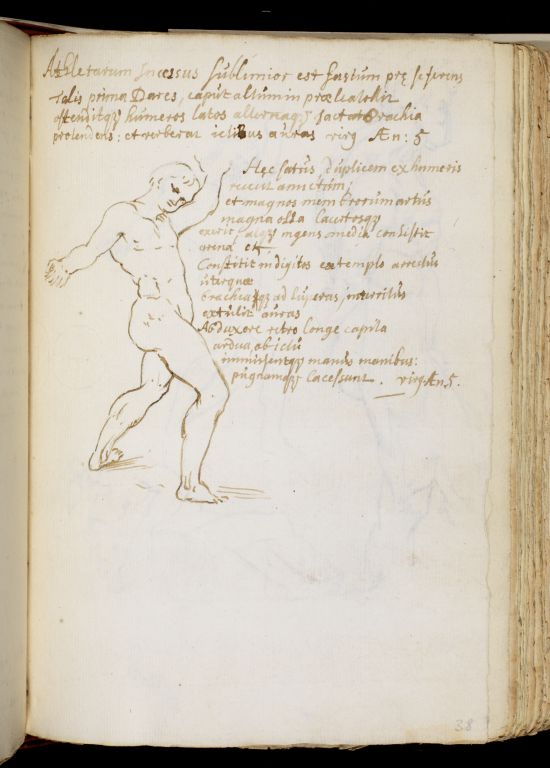 Athletarum Incessus sublimior est fastum prę se ferens
Talis prima Dares, caput altum in prœlia tollit
ostenditqꝫ humeros latos alternaqꝫ jactat Brachia
protendens: et verberat ictibus auras virg Æn: 5
Hęc fatus, duplicem ex humeris
reiecit amictum;
et magnos membrorum artus
magna ossa lacertosqꝫ
exuit atqꝫ ingens media consistit
arena etc
Constitit in digitos extemplo arrectus
uterque
brachiaqꝫ ad superas interritus
extulit auras
Abduxere retro longe capita
ardua ab ictu
immiscentqꝫ manus manibus:
pugnamqꝫ lacessunt. virg Æn 5.
38